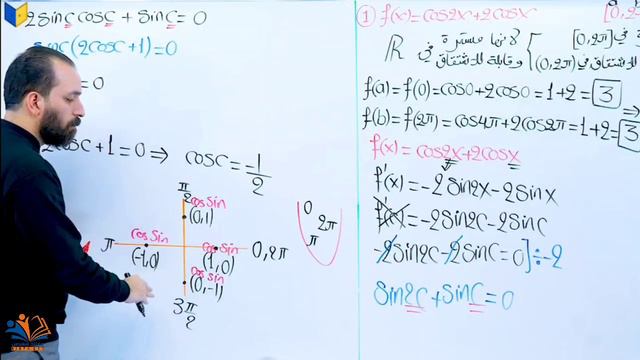 2sinc cosc + sinc = 0
sinc(2cosc+1)=0
= 0
2cosc+1=0 ⇒ cosc = -1/2
π/2
cos sin
(0,1)
cos sin
π
(-1,0)
cos sin
(1,0)
0,2π
cos sin
(0,-1)
3π/2
0
2π
π
① f(x)=cos2x+2cosx
[0,
R
لانها مستمرة في [0,2π]
و قابلة للاشتقاق في (0,2π)
f(a)=f(0)=cos0+2cos0=1+2=3
f(b)=f(2π)=cos4π+2cos2π=1+2=3
f(x)=cos2x+2cosx
f'(x)=-2sin2x-2sinx
f'(x)=-2sin2c-2sinc
-2sin2c-2sinc=0]÷-2
sin2c+sinc=0